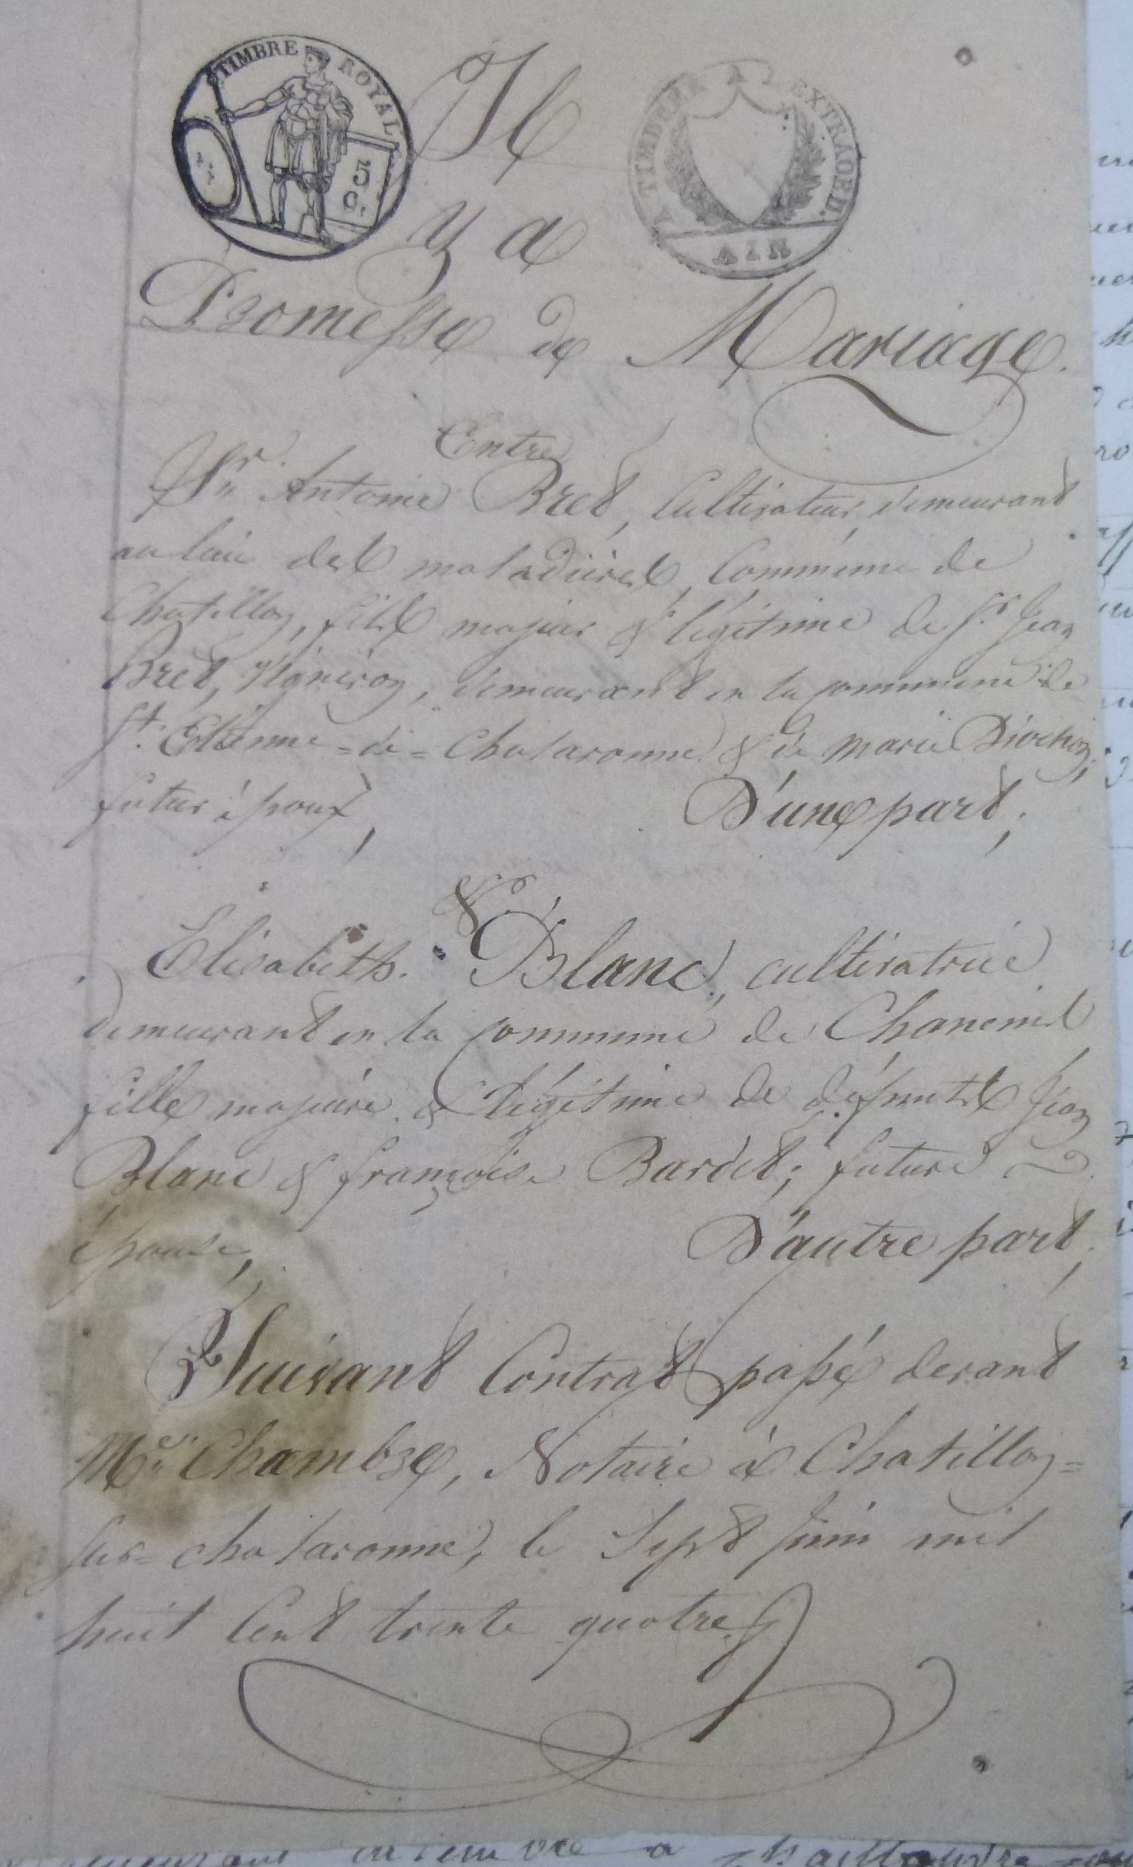 TIMBRE ROYAL
5
C.
A TIMBRER A L'EXTRAORD.
AIN
Il
y a
Promesse de Mariage.
Entre
Sr. Antoine Bret, Cultivateur, demeurant
au lieu des maladières, Commune de
Chatillon, fils majeur & légitime de Sr. Jean
Bret, Vigneron, demeurant en la commune de
St. Etienne=de=Chalaronne & de Marie Diochon,
futur époux, D'une part,
&
Elisabeth Blanc, cultivatrice
demeurant en la commune de Chaneins
fille majeure & légitime de défunts Jean
Blanc & françoise Bardet; future
épouse, D'autre part,
Suivant Contrat passé devant
Me. Chambre, Notaire à Chatillon=
sur=chalaronne, le Sept Juin mil
huit Cent trente quatre